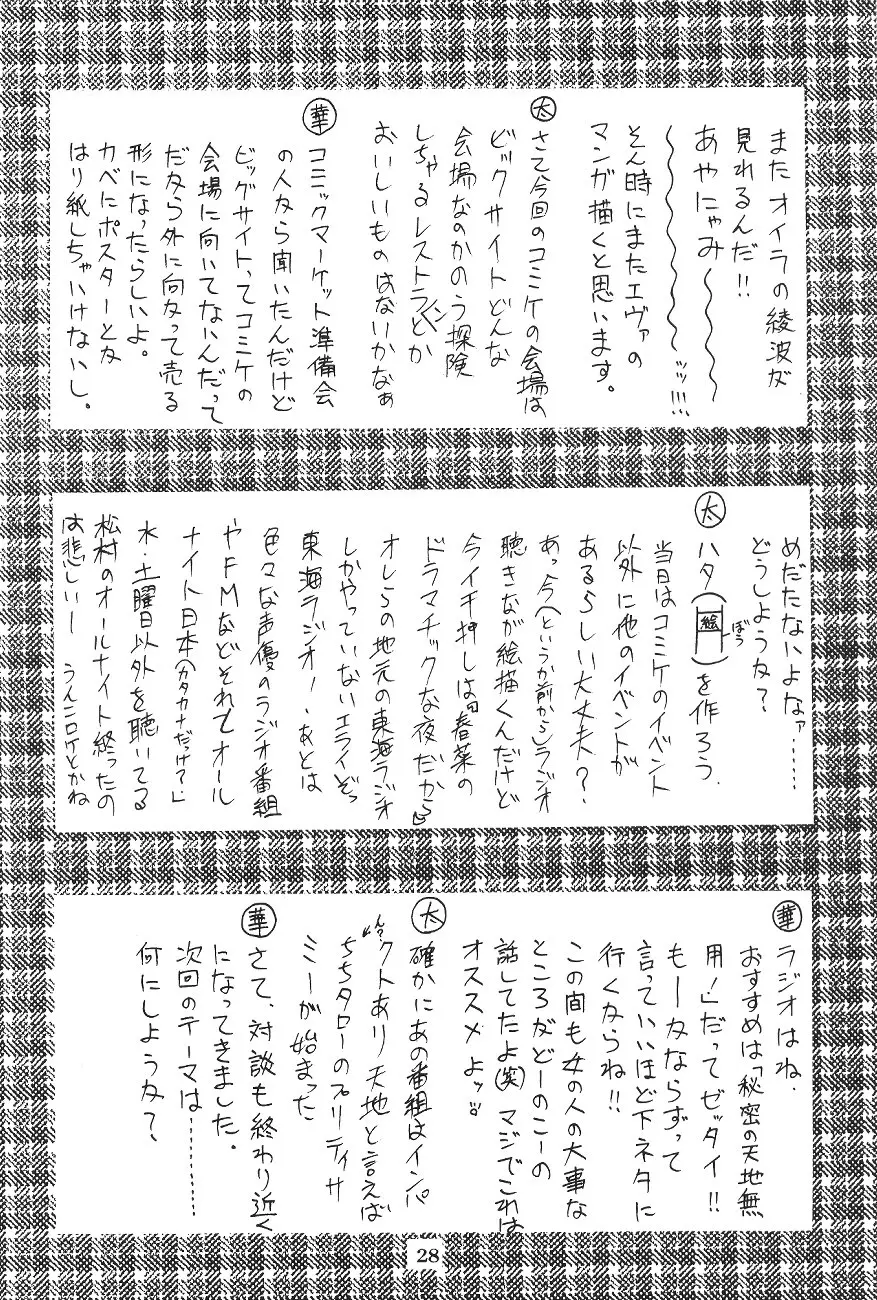 またオイラの綾波が
見れるんだ!!
あやにゃみ〜〜〜
〜〜〜〜〜〜ッッ!!!
そん時にまたエヴァの
マンガ描くと思います。
太
さて今回のコミケの会場は
ビックサイトどんな
会場なのかのう探険
しちゃるレストランとか
おいしいものはないかなぁ
華
コミックマーケット準備会
の人から聞いたんだけど
ビッグサイトってコミケの
会場に向いてないんだって
だから外に向かって売る
形になったらしいよ。
カベにポスターとか
はり紙しちゃいけないし。
めだたないよなァ……
どうしようか?
太
ハタ(絵 ぼう)を作ろう.
当日はコミケのイベント
以外に他のイベントが
あるらしい大丈夫?
あっ今(というか前から)ラジオ
聴きなが絵描くんだけど
今イチ押しは「春菜の
ドラマチックな夜だから」
オレらの地元の東海ラジオ
しかやっていないエライぞっ
東海ラジオ!あとは
色々な声優のラジオ番組
やFMなどそれでオール
ナイト日本(カタカナだっけ?)
水・土曜日以外を聴いてる
松村のオールナイト終ったの
は悲しいー うんこロケとかね
華
ラジオはね.
おすすめは「秘密の天地無
用!」だってゼッタイ!!
もーかならずって
言っていいほど下ネタに
行くからね!!
この間も女の人の大事な
ところがどーのこーの
話してたよ(笑)マジでこれは
オススメよッ!!
太
確かにあの番組はインパ
クトあり天地と言えば
んっ?
ちちタローのプリティサ
ミーが始まった
華
さて、対談も終わり近く
になってきました。
次回のテーマは………
何にしようか?
28